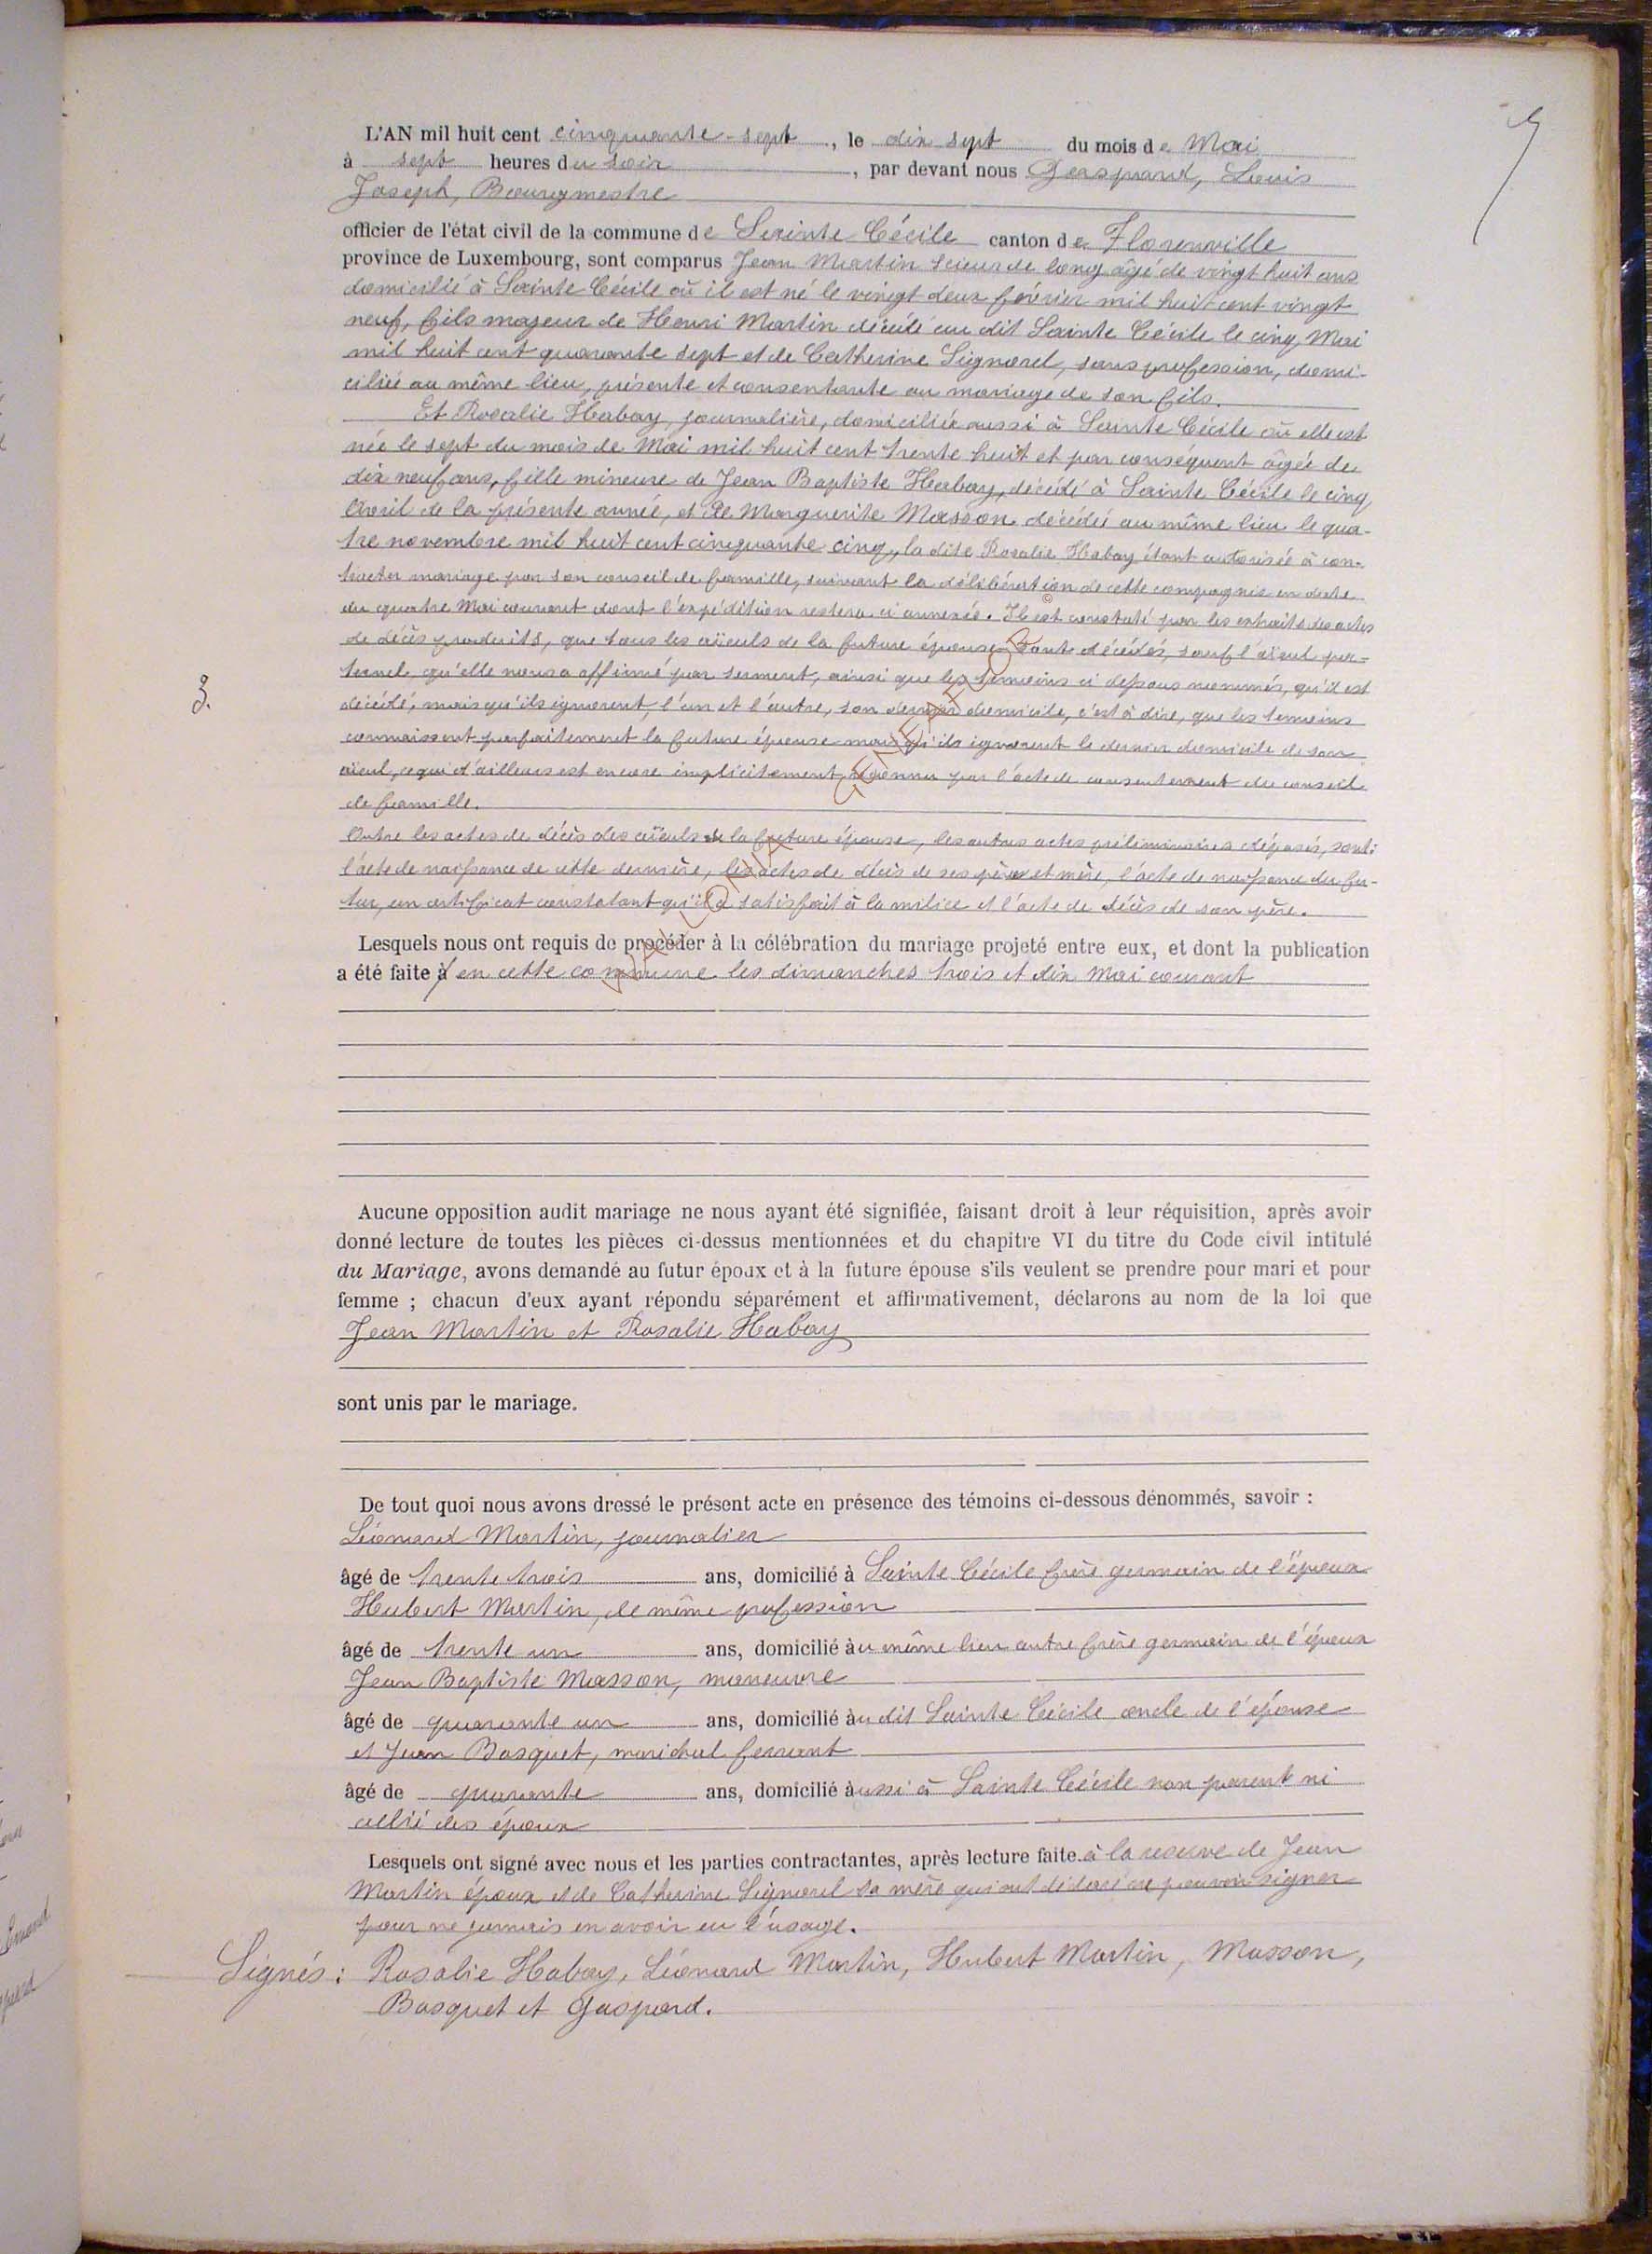 L'AN mil huit cent cinquante-sept, le dix sept du mois de Mai
à sept heures du soir, par devant nous Gaspard, Louis
Joseph, Bourgmestre
officier de l'état civil de la commune de Sainte Cécile canton de Florenville
province de Luxembourg, sont comparus Jean Martin scieur de long âgé de vingt huit ans
domicilié à Sainte Cécile où il est né le vingt deux février mil huit cent vingt
neuf, fils majeur de Henri Martin décédé au dit Sainte Cécile le cinq Mai
mil huit cent quarante sept et de Catherine Lignorel, sans profession, domi-
ciliée au même lieu, présente et consentante au mariage de son fils.
Et Rosalie Habay, journalière, domiciliée aussi à Sainte Cécile où elle est
née le sept du mois de Mai mil huit cent trente huit et par consequent âgée de
dix neuf ans, fille mineure de Jean Baptiste Habay, décédé à Sainte Cécile le cinq
Avril de la présente année, et de Marguerite Masson décédée au même lieu le qua-
tre novembre mil huit cent cinquante cinq, la dite Rosalie Habay étant autorisée à con-
tracter mariage par son conseil de famille, suivant la délibération de cette compagnie en date
du quatre Mai courant dont l'expédition restera ci annexée. Il est constaté par les extraits des actes
de décès produits, que tous les aïeuls de la future épouse sont décédés, sauf l'aïeul pa-
ternel, qu'elle nous a affirmé par serment, ainsi que les temoins ci dessous nommés, qu'il est
décédé, mais qu'ils ignorent, l'un et l'autre, son dernier domicile, c'est à dire, que les temoins
connaissent parfaitement la future épouse mais qu'ils ignorent le dernier domicile de son
aïeul, ce qui d'ailleurs est encore implicitement reconnu par l'acte de consentement du conseil
de famille.
Outre les actes de décès des aïeuls de la future épouse, les autres actes préliminaires déposés, sont:
l'acte de naissance de cette dernière, les actes de décès de ses père et mère, l'acte de naissance du fu-
tur, un certificat constatant qu'il a satisfait à la milice et l'acte de décès de son père.
3.
Lesquels nous ont requis de procéder à la célébration du mariage projeté entre eux, et dont la publication
a été faite à en cette commune les dimanches trois et dix Mai courant
WALLONIA GENEAFLOR ©
Aucune opposition audit mariage ne nous ayant été signifiée, faisant droit à leur réquisition, après avoir
donné lecture de toutes les pièces ci-dessus mentionnées et du chapitre VI du titre du Code civil intitulé
du Mariage, avons demandé au futur époux et à la future épouse s'ils veulent se prendre pour mari et pour
femme ; chacun d'eux ayant répondu séparément et affirmativement, déclarons au nom de la loi que
Jean Martin et Rosalie Habay
sont unis par le mariage.
De tout quoi nous avons dressé le présent acte en présence des témoins ci-dessous dénommés, savoir :
Léonard Martin, journalier
âgé de trente trois ans, domicilié à Sainte Cécile frère germain de l'époux
Hubert Martin, de même profession
âgé de trente un ans, domicilié àu même lieu autre frère germain de l'époux
Jean Baptiste Masson, maneuvre
âgé de quarante un ans, domicilié àu dit Sainte Cécile oncle de l'épouse
et Jean Bosquet, maréchal ferrant
âgé de quarante ans, domicilié àussi à Sainte Cécile non parent ni
allié des époux
Lesquels ont signé avec nous et les parties contractantes, après lecture faite à la reserve de Jean
Martin époux et de Catherine Lignorel sa mère qui ont déclaré ne pouvoir signer
pour ne jamais en avoir eu l'usage.
Signés : Rosalie Habay, Léonard Martin, Hubert Martin, Masson,
Bosquet et Gaspard.